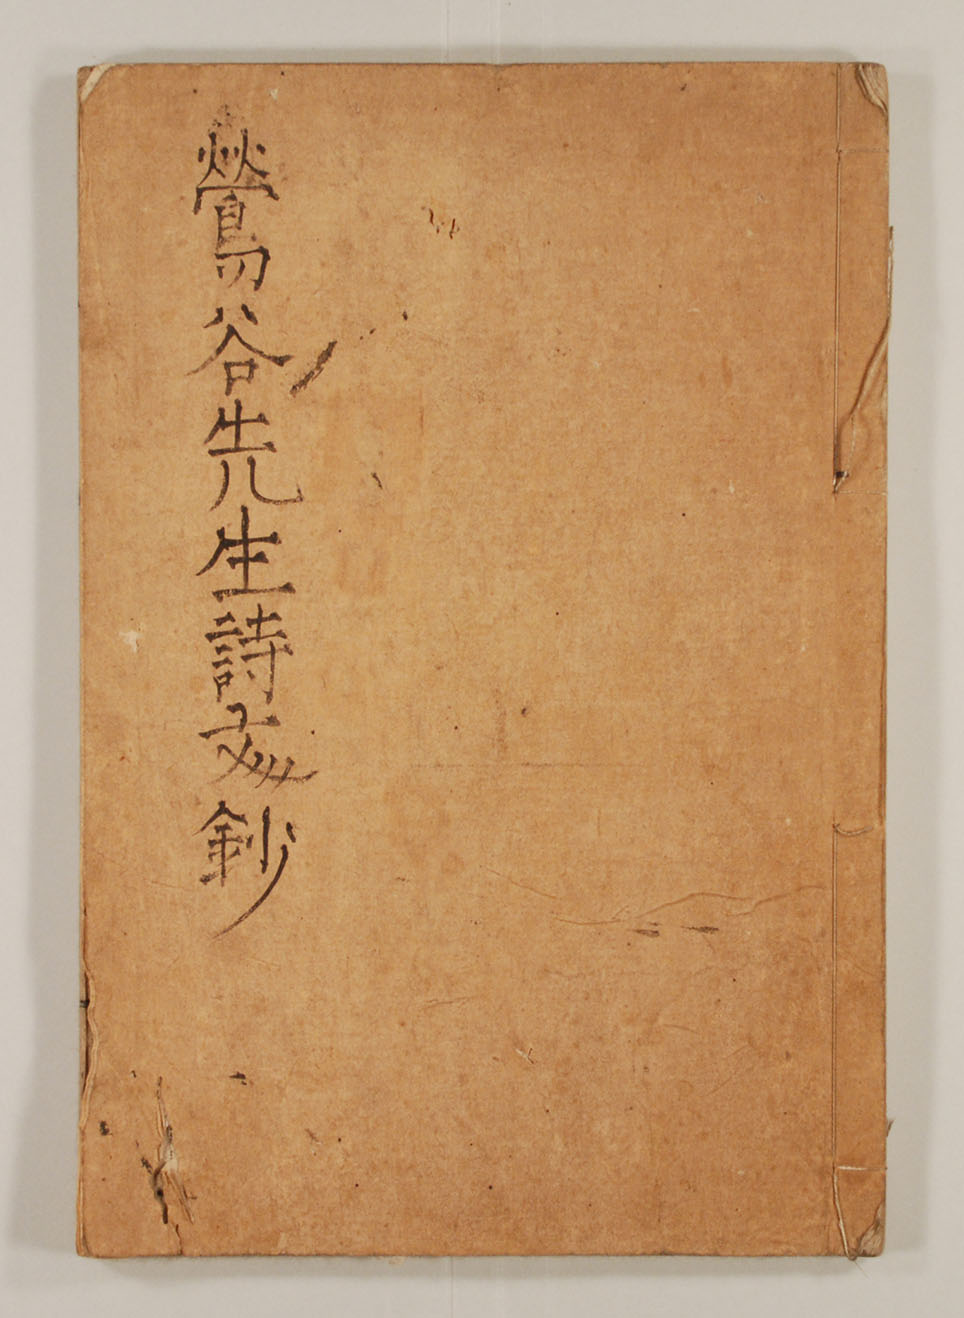 鶯谷先生詩文鈔